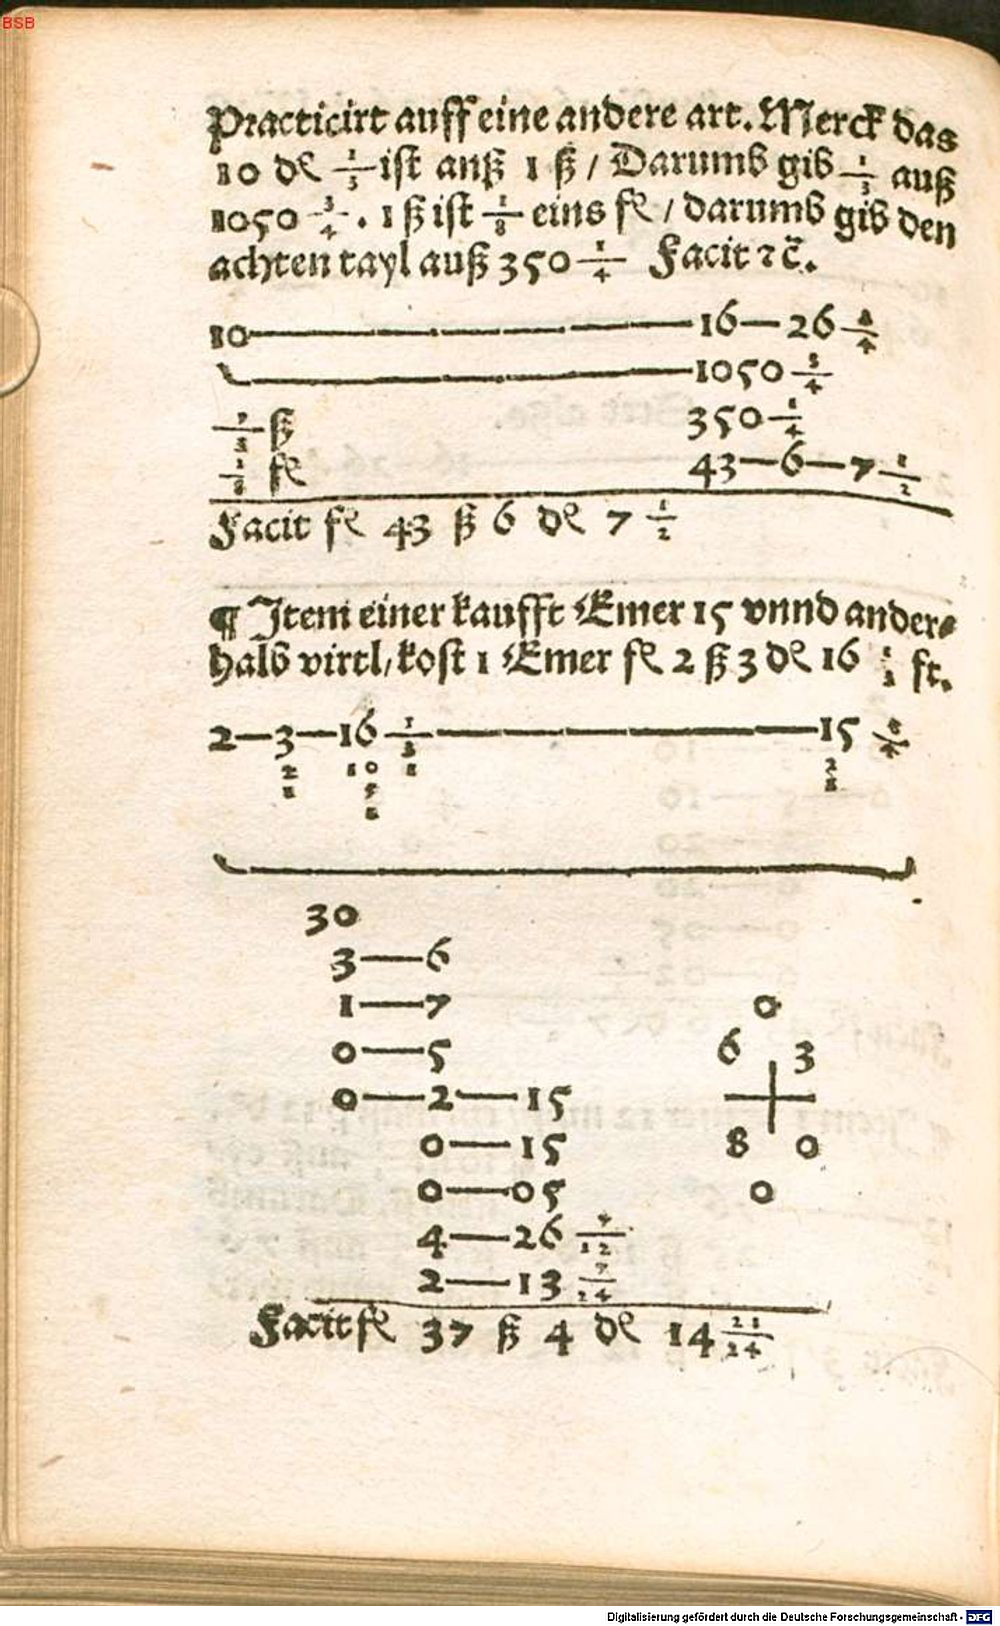 BSB
Practicirt auff eine andere art. Merck das
10 dl 1/3 ist auß 1 ß / Darumb gib 1/3 auß
1050 3/4 . 1 ß ist 1/8 eins fl / darumb gib den
achten tayl auß 350 1/4 Facit ⁊c̄.
10 — 16 — 26
1050 3/4
ß 350 1/4
1/8 fl 43 — 6 — 7 1/2
Facit fl 43 ß 6 dl 7 1/2
¶ Item einer kaufft Emer 15 vnnd ander⸗
halb virtl / kost 1 Emer fl 2 ß 3 dl 16 1/3 ft.
2 — 3 — 16 1/3 — 15
2 10 1 2
1 5 1
1
30
3 — 6
1 — 7
0 — 5
0 — 2 — 15
0 — 15
0 — 05
4 — 26 7/12
2 — 13 7/24
0
6 3
8 0
0
Facit fl 37 ß 4 dl 14 21/24
Digitalisierung gefördert durch die Deutsche Forschungsgemeinschaft - DFG